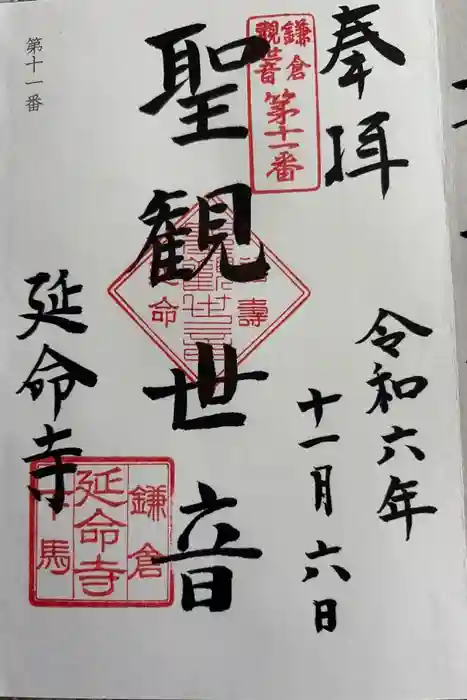 奉拝
令和六年
十一月六日
鎌倉
観世音
第十一番
聖観世音
延命寺
第十一番
鎌倉
延命寺
下馬
命
壽